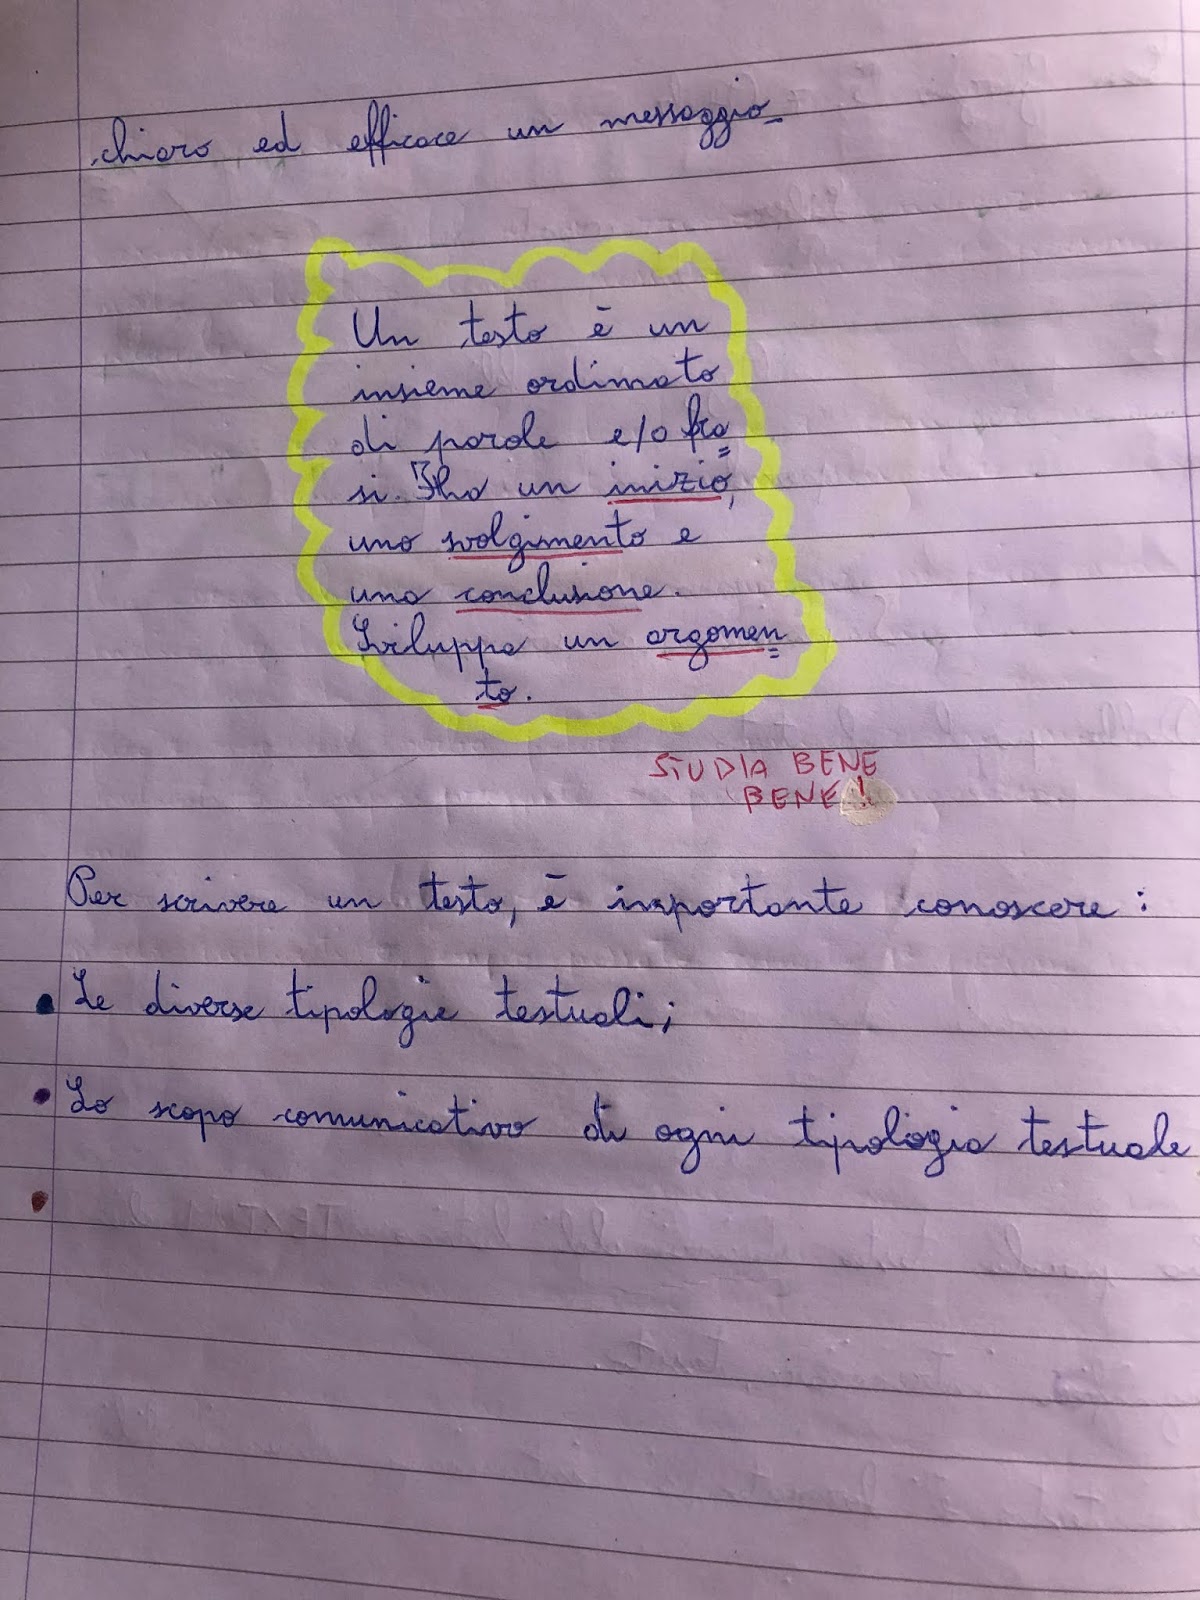 chiaro ed efficace un messaggio
Un testo è un
insieme ordinato
di parole e/o fra
si. Ha un inizio,
uno svolgimento e
una conclusione.
Sviluppa un argomen
to.
STUDIA BENE
BENE!
Per scrivere un testo, è importante conoscere:
• Le diverse tipologie testuali;
• Lo scopo comunicativo di ogni tipologia testuale
•